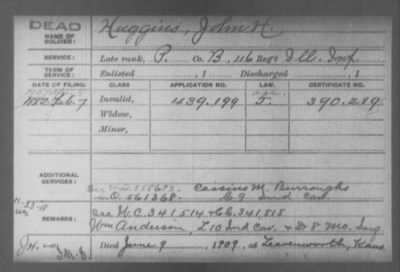 DEAD
NAME OF SOLDIER: Huggins, John H.
SERVICE: Late rank, P. Co. B, 116 Reg't Ill. Inf
TERM OF SERVICE: Enlisted , 1 Discharged , 1
DATE OF FILING. CLASS. APPLICATION NO. LAW. CERTIFICATE NO.
1882 Feb. 7 Invalid, 439.199 J. 390.289.
Widow,
Minor,
ADDITIONAL SERVICES: Cassius M. Burroughs
561368. C 9 Ind Cav.
11-23-18
REMARKS: See W.C. 341,514 & C.C. 341,515
Wm Anderson, L 10 Ind Cav. & D 8 Mo. Inf
Died June 9, 1909, at Leavenworth, Kans.